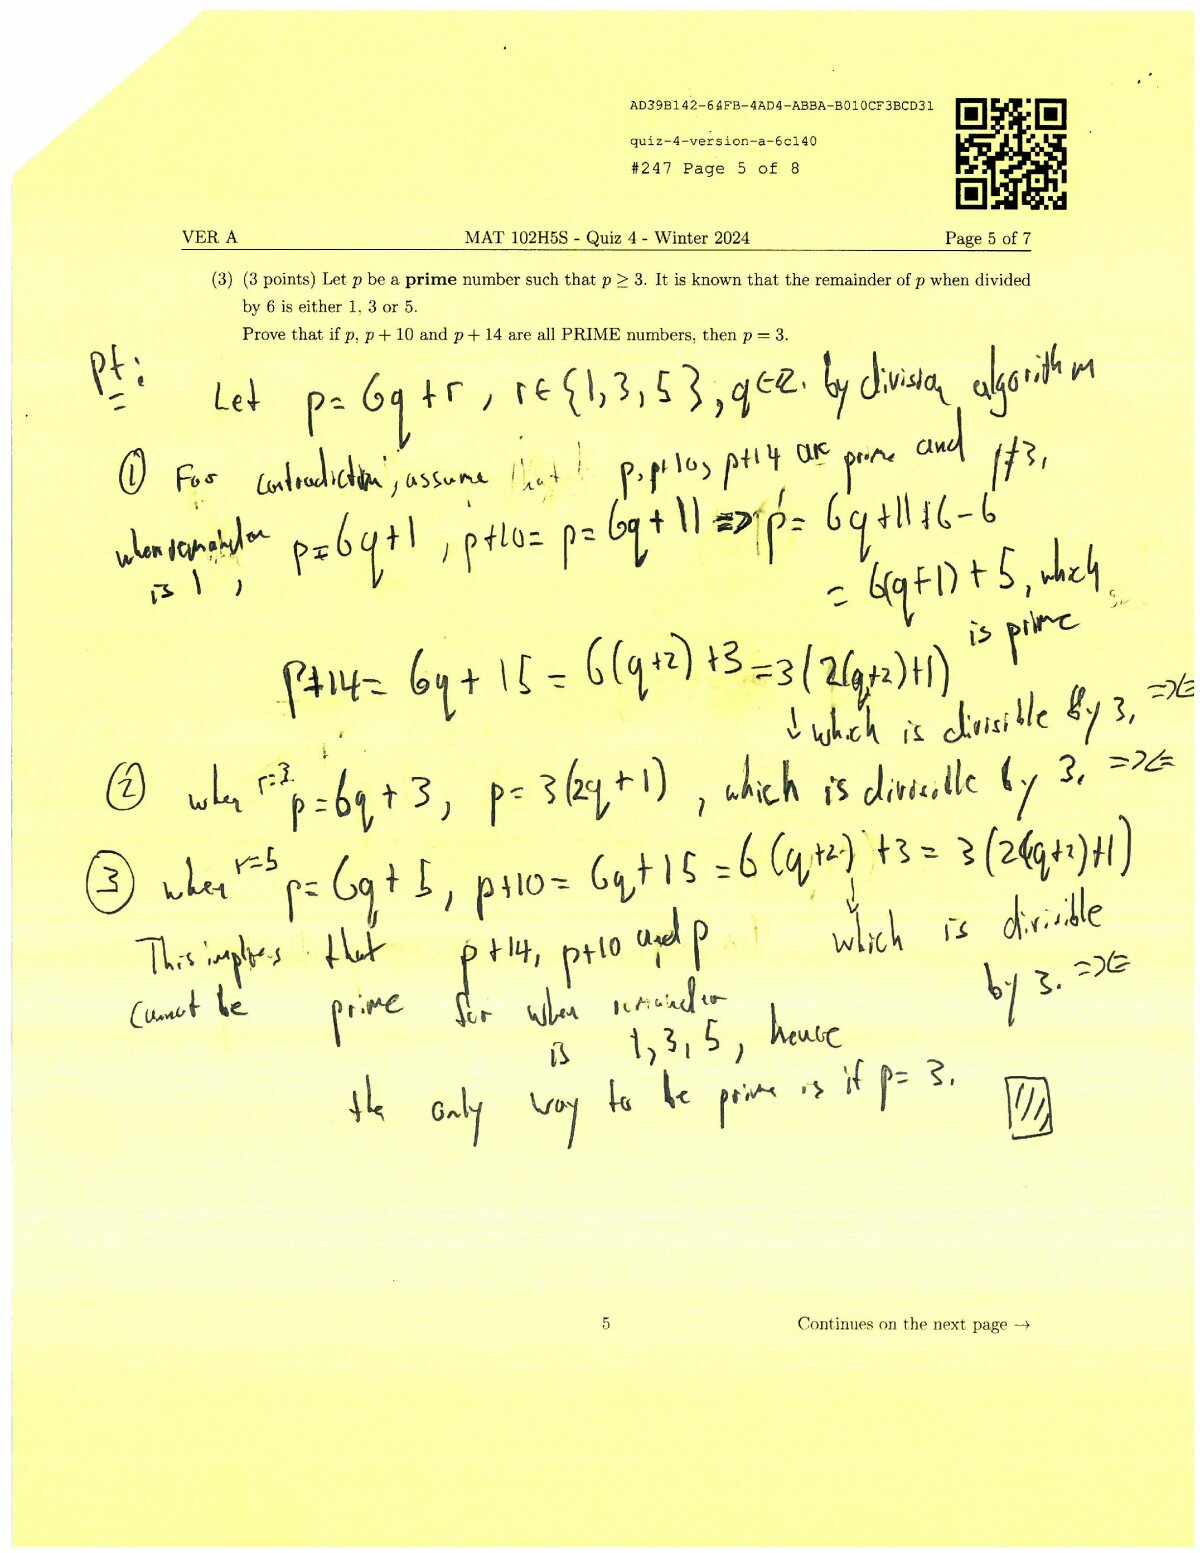 AD39B142-64FB-4AD4-ABBA-B010CF3BCD31
quiz-4-version-a-6c140
#247 Page 5 of 8
VER A MAT 102H5S - Quiz 4 - Winter 2024 Page 5 of 7
(3) (3 points) Let p be a prime number such that p ≥ 3. It is known that the remainder of p when divided
by 6 is either 1, 3 or 5.
Prove that if p, p + 10 and p + 14 are all PRIME numbers, then p = 3.
pf:
Let p = 6q + r, r ∈ {1, 3, 5}, q ∈ Z. by division algorithm
① For contradiction, assume that p, p+10, p+14 are prime and p≠3.
when remainder is 1, p = 6q+1, p+10 = p = 6q + 11 => p = 6q+11+6-6
= 6(q+1) + 5, which
is prime
p+14 = 6q + 15 = 6(q+2) +3 = 3(2(q+2)+1)
↓ which is divisible by 3. =><=
② when r=3 p = 6q + 3, p = 3(2q + 1), which is divisible by 3. =><=
③ when r=5 p = 6q + 5, p+10 = 6q + 15 = 6(q+2) +3 = 3(2(q+2)+1)
↓
which is divisible
by 3. =><=
This implies that p+14, p+10 and p
cannot be prime for when remainder
is 1, 3, 5, hence
the only way to be prime is if p = 3.
5
Continues on the next page →